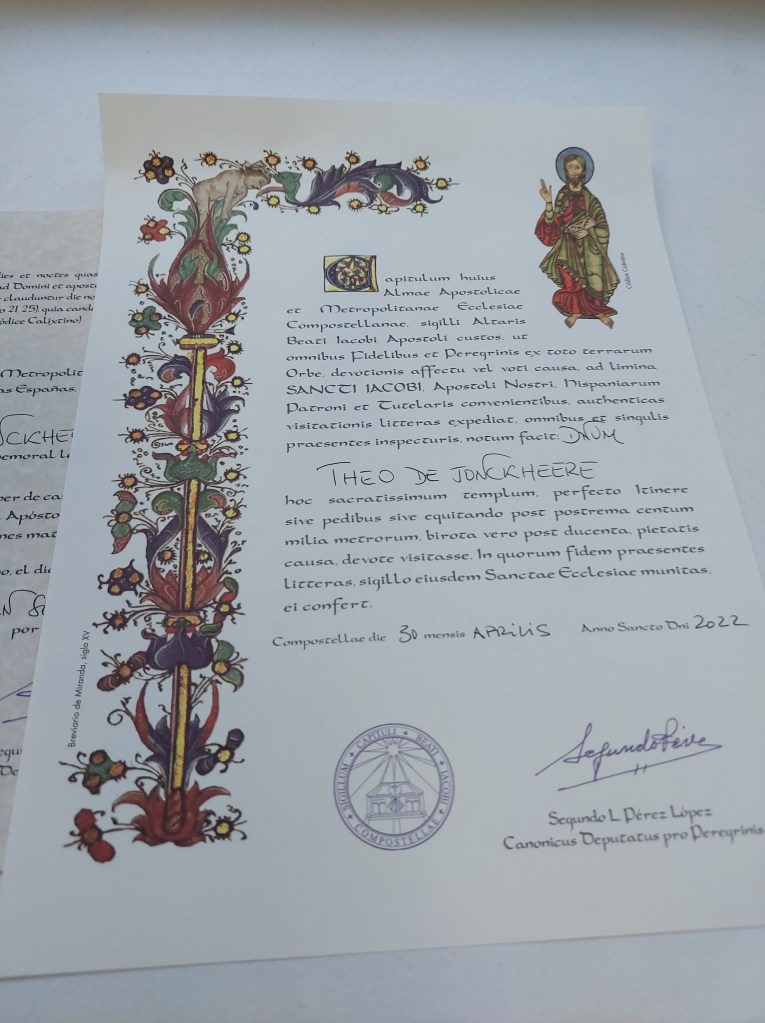 Capitulum huius
Almae Apostolicae
et Metropolitanae Ecclesiae
Compostellanae, sigilli Altaris
Beati Iacobi Apostoli custos, ut
omnibus Fidelibus et Peregrinis ex toto terrarum
Orbe, devotionis affectu vel voti causa, ad limina
SANCTI IACOBI, Apostoli Nostri, Hispaniarum
Patroni et Tutelaris convenientibus, authenticas
visitationis litteras expediat, omnibus et singulis
praesentes inspecturis, notum facit: DNUM
THEO DE JONCKHEERE
hoc sacratissimum templum, perfecto Itinere
sive pedibus sive equitando post postrema centum
milia metrorum, birota vero post ducenta, pietatis
causa, devote visitasse. In quorum fidem praesentes
litteras, sigillo eiusdem Sanctae Ecclesiae munitas,
ei confert.
Compostellae die 30 mensis APRILIS Anno Sancto Dni 2022
Segundo L. Pérez López
Canonicus Deputatus pro Peregrinis
SIGILLUM CAPITULI BEATI IACOBI COMPOSTELLAE
Codex Calixtinus
Breviario de Miranda, siglo XV
dies et noctes quas
ad Domini et apost
clauduntur die no
21, 25), quia cand
ódice Calixtino)
Metropolit
as Españas,
NCKHE
emoral
per de ca
Apósto
nes mat
o, el dí
por